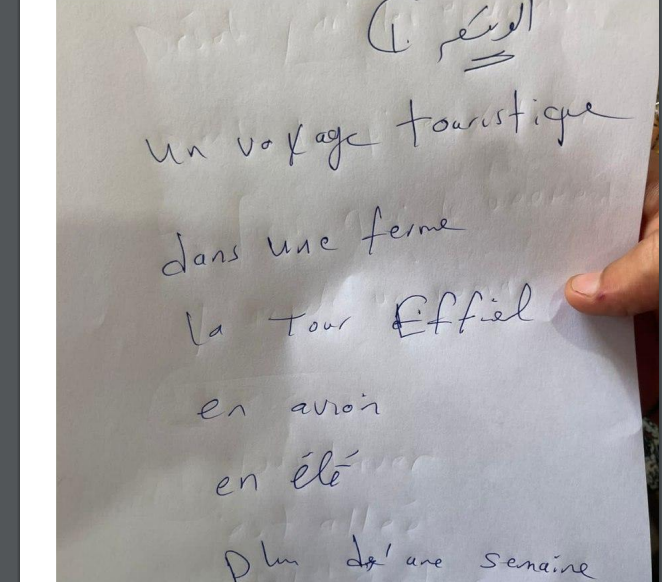 un voyage touristique
dans une ferme
la tour Effiel
en avion
en été
Plus d'une semaine